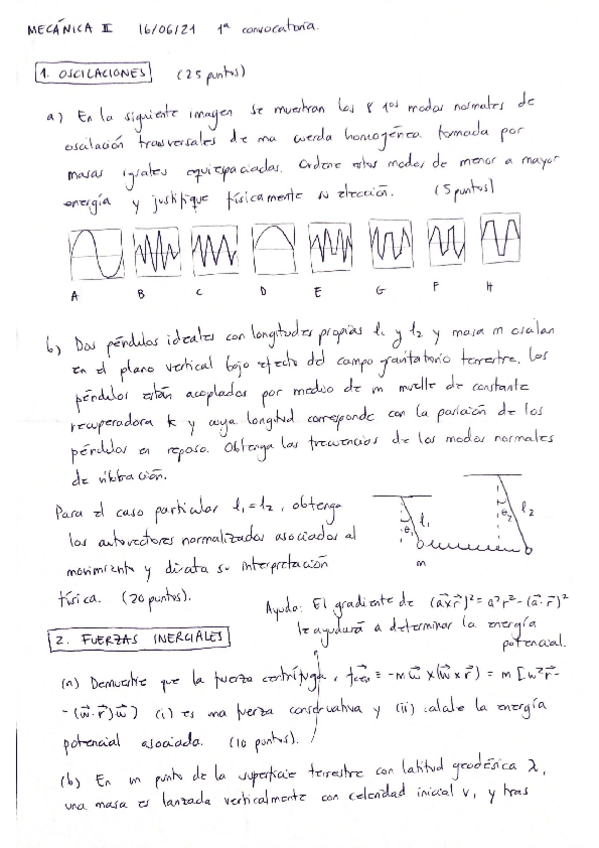 MECÁNICA II 16/06/21 1ª convocatoria.
1. OSCILACIONES (25 puntos)
a) En la siguiente imagen se muestran los 8 1os modos normales de
oscilación trasversales de una cuerda homogénea formada por
masas iguales equiespaciadas. Ordene estos modos de menor a mayor
energía y justifique físicamente su elección. (5 puntos)
A B C D E G F H
b) Dos péndulos ideales con longitudes propias l1 y l2 y masa m oscilan
en el plano vertical bajo efecto del campo gravitatorio terrestre. Los
péndulos están acoplados por medio de un muelle de constante
recuperadora k y cuya longitud corresponde con la posición de los
péndulos en reposo. Obtenga las frecuencias de los modos normales
de vibración.
Para el caso particular l1=l2, obtenga
los autovectores normalizados asociados al
movimiento y discuta su interpretación
física. (20 puntos).
θ1 l1 θ2 l2
m
Ayuda: El gradiente de (a⃗×r⃗)²=a²r²-(a⃗·r⃗)²
le ayudará a determinar la energía
potencial.
2. FUERZAS INERCIALES
(a) Demuestre que la fuerza centrífuga, f⃗cen = -m ω⃗ ×(ω⃗ × r⃗) = m [ω²r⃗-
-(ω⃗·r⃗)ω⃗) (i) es una fuerza conservativa y (ii) calcule la energía
potencial asociada. (10 puntos).
(b) En un punto de la superficie terrestre con latitud geodésica λ,
una masa es lanzada verticalmente con celeridad inicial v, y tras